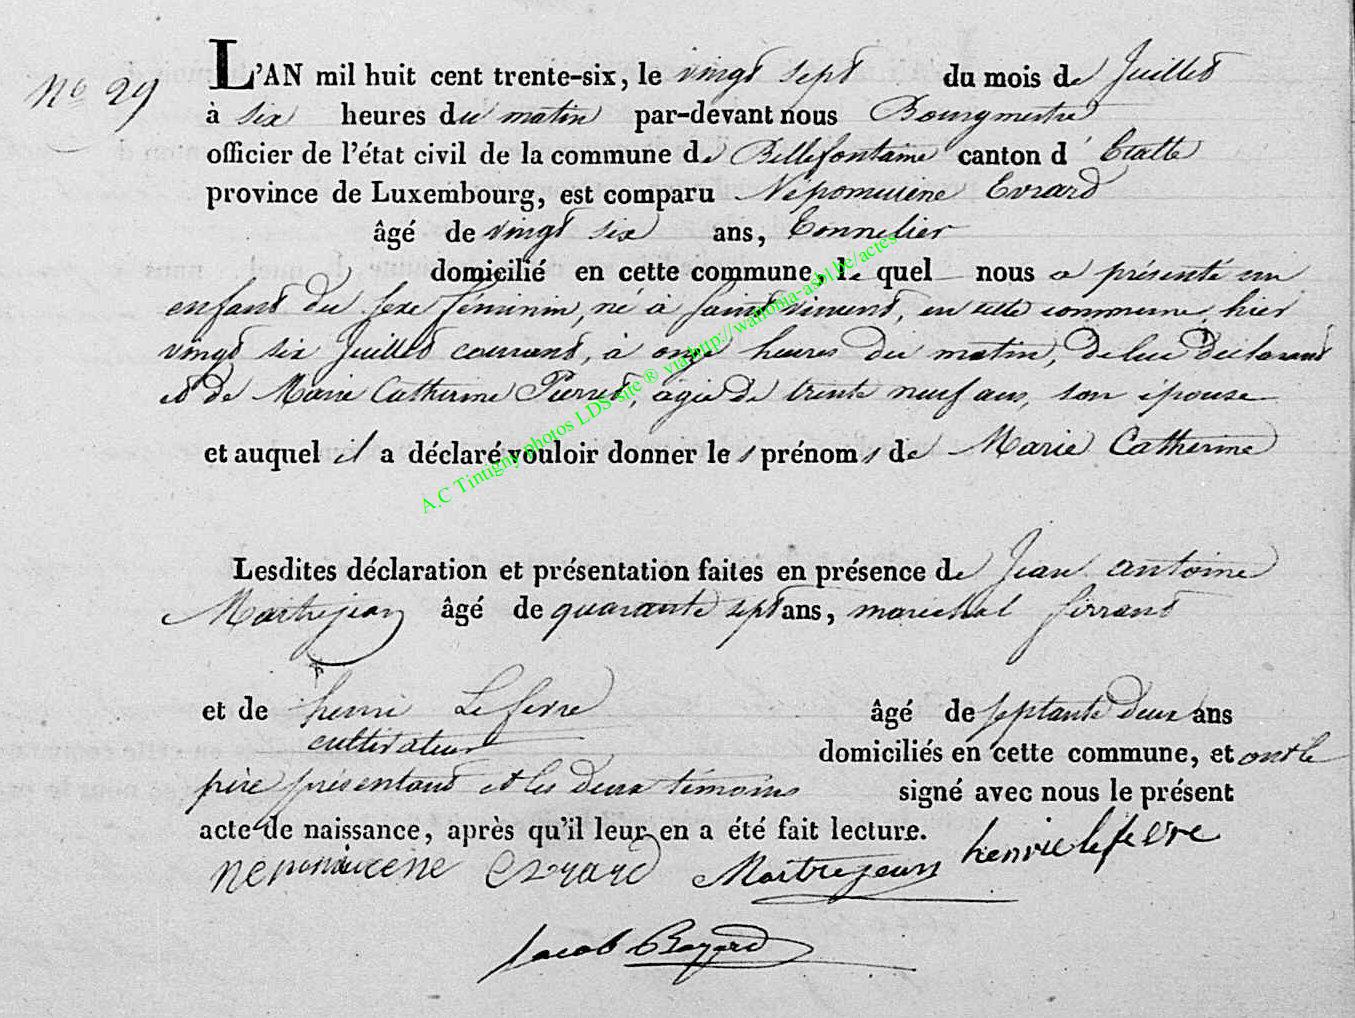 N° 29
L'AN mil huit cent trente-six, le vingt sept du mois de Juillet
à six heures du matin par-devant nous Bourgmestre
officier de l'état civil de la commune de Bellefontaine canton d' Etalle
province de Luxembourg, est comparu Népomucène Evrard
âgé de vingt six ans, Tonnelier
domicilié en cette commune, le quel nous a présenté un
enfant du sexe féminin, né à Saint vincent, en cette commune, hier
vingt six Juillet courant, à onze heures du matin, de lui déclarant
et de Marie Catherine Pierret, agée de trente neuf ans, son épouse
et auquel il a déclaré vouloir donner les prénoms de Marie Catherine
A.C Tintigny photos LDS site ® via http://wallonia-asbl.be/actes
Lesdites déclaration et présentation faites en présence de Jean antoine
Maitrejean âgé de quarante sept ans, maréchal ferrant
et de henri Lefevre âgé de septante deux ans
cultivateur domiciliés en cette commune, et ont le
père présentant et les deux témoins signé avec nous le présent
acte de naissance, après qu'il leur en a été fait lecture.
nepomucene evrard Maitrejean henri lefevre
Jacob Bayard